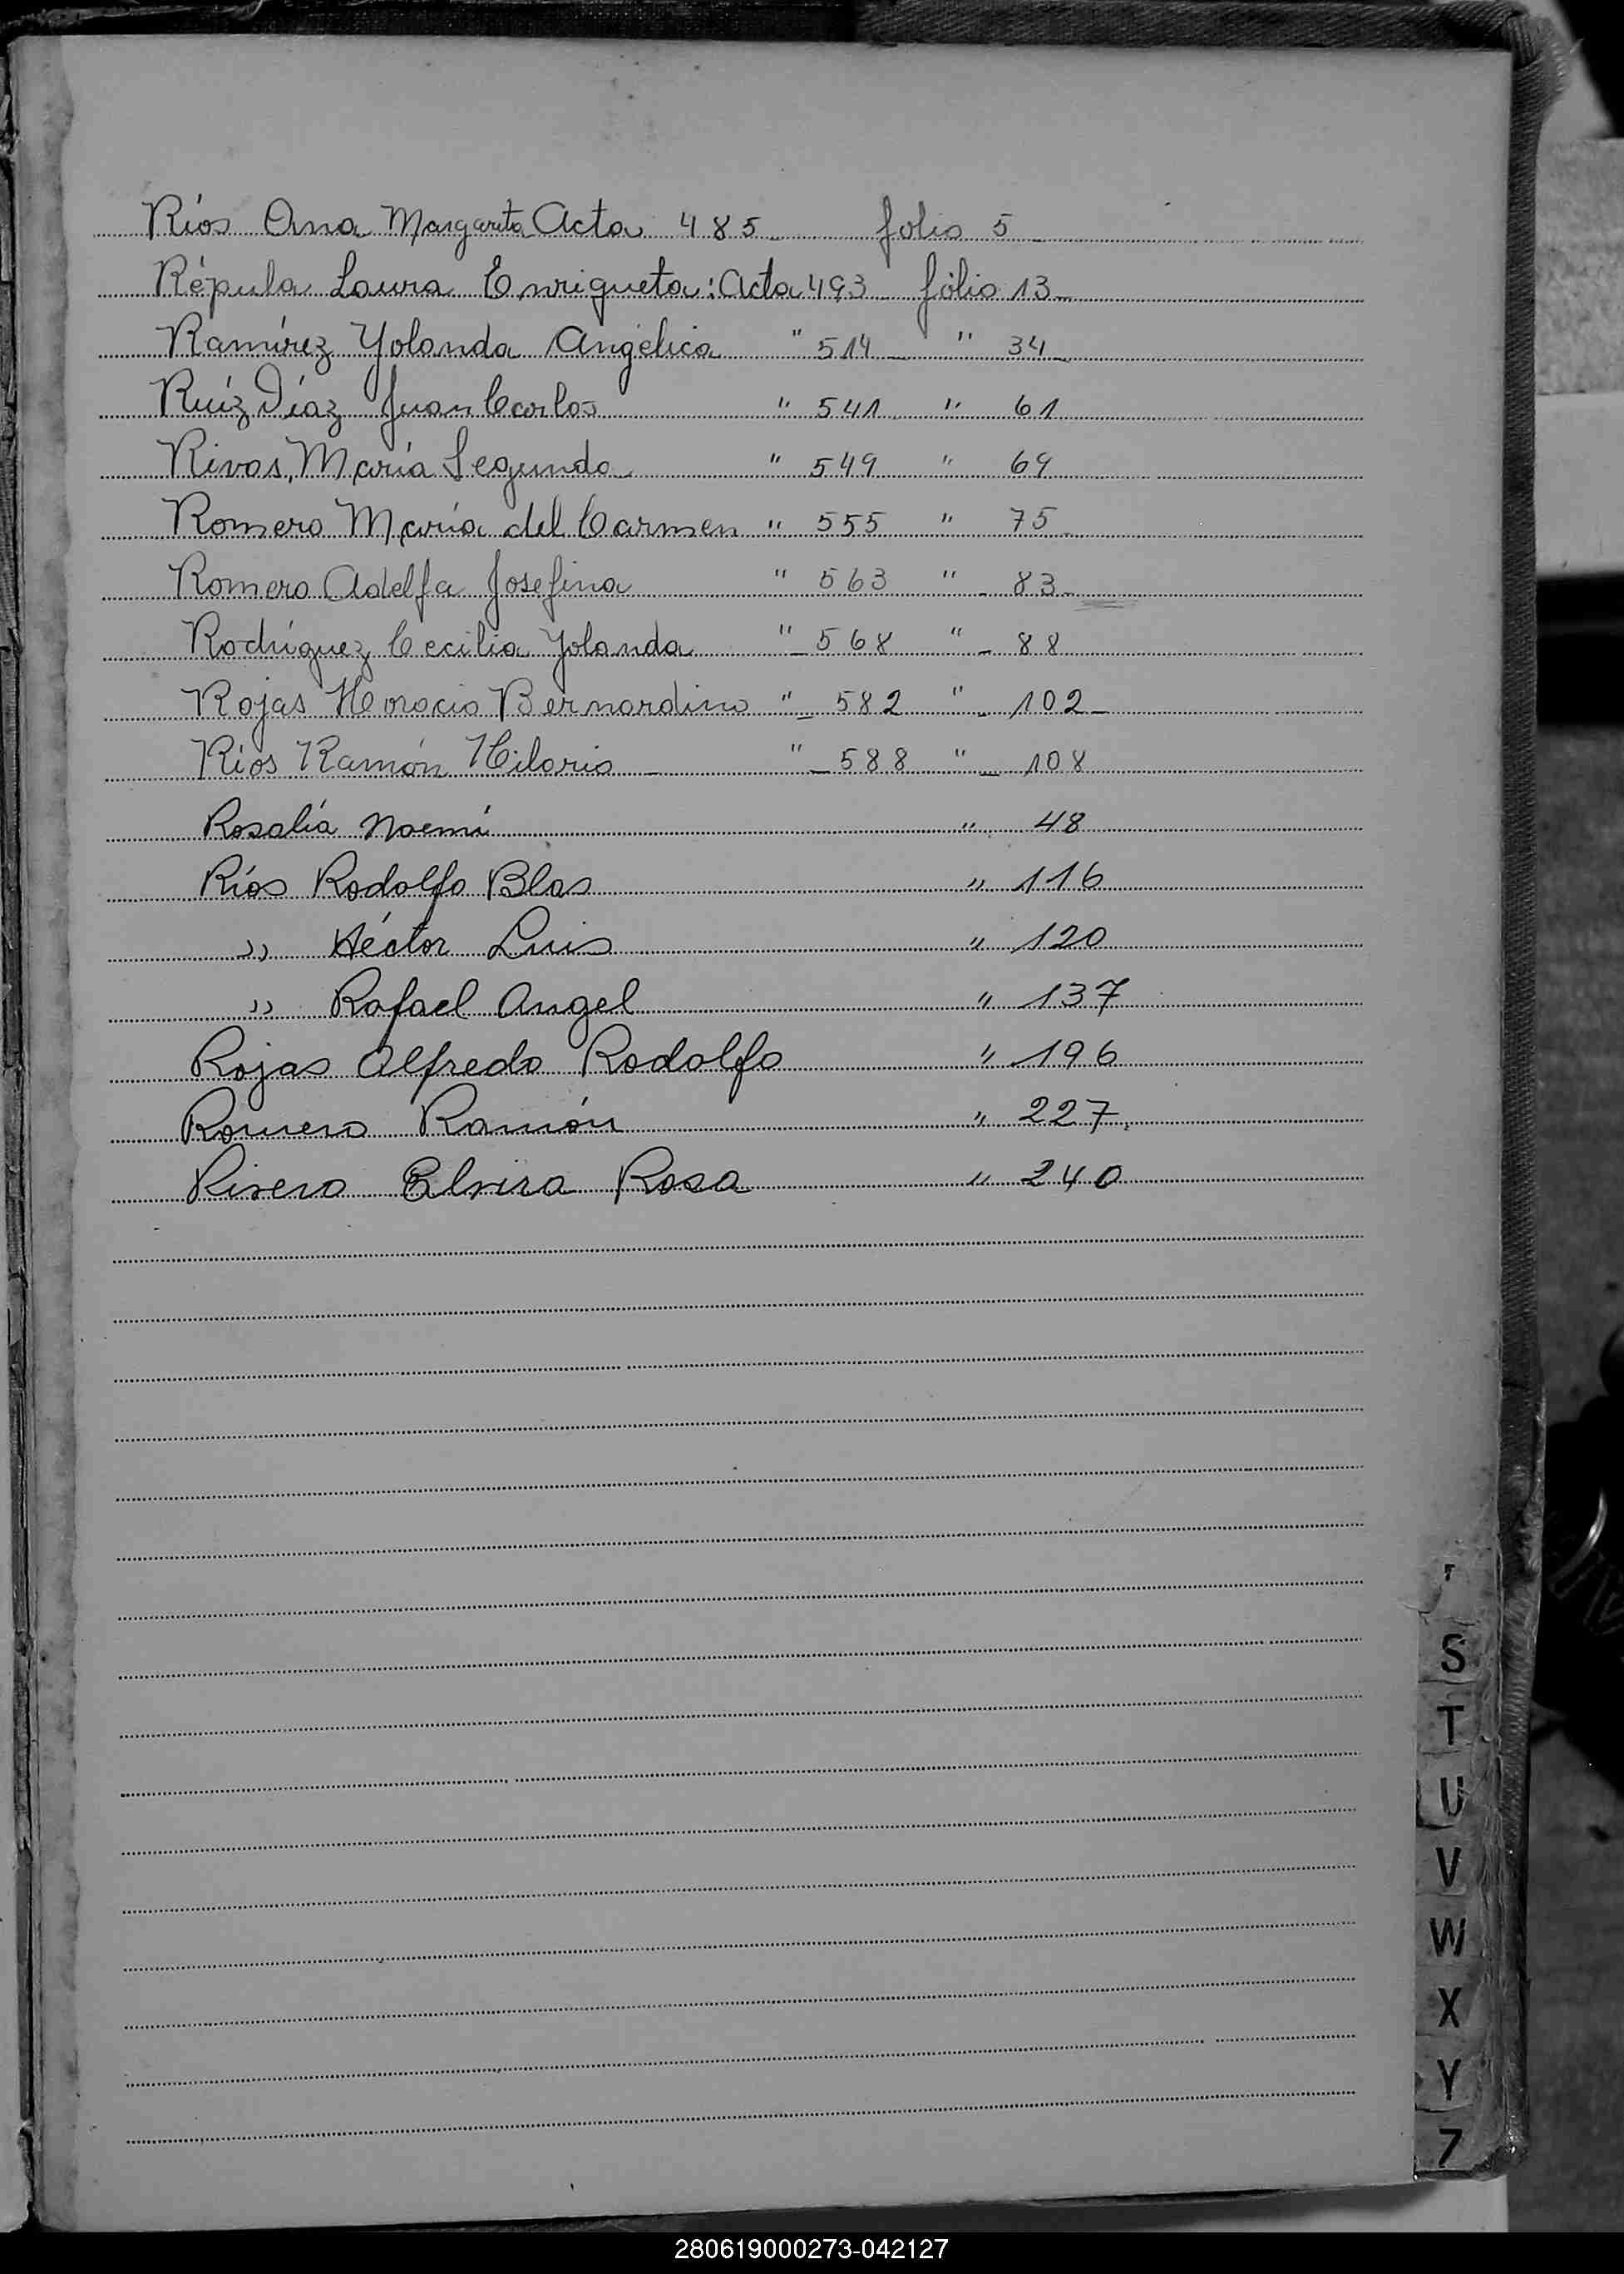 Ríos Ana Margarita Acta 485 folio 5
Répula Laura Enriqueta: Acta 493 folio 13
Ramírez Yolanda Angélica " 514 " 34
Ruíz Díaz Juan Carlos " 541 " 61
Rivas, María Segunda " 549 " 69
Romero María del Carmen " 555 " 75
Romero Adelfa Josefina " 563 " 83
Rodríguez Cecilia Yolanda " 568 " 88
Rojas Horacio Bernardino " 582 " 102
Ríos Ramón Hilario " 588 " 108
Rosalía Noemí " 48
Ríos Rodolfo Blas " 116
" Héctor Luis " 120
" Rafael Angel " 137
Rojas Alfredo Rodolfo " 196
Romero Ramón " 227
Rivero Elvira Rosa " 240
S
T
U
V
W
X
Y
Z
280619000273-042127